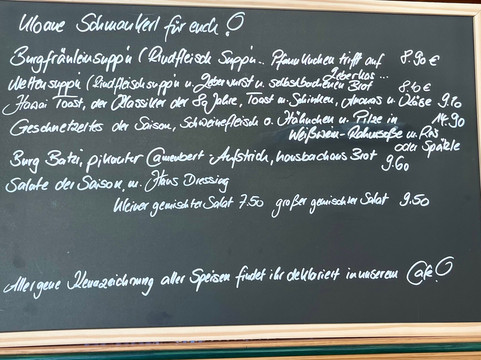 Kloane Schmankerl für euch!
Burgfräuleinsupp'n (Rindfleisch Supp'n.. Pfannkuchen trifft auf 8.90 €
Leberkas...
Mettensupp'n (Rindfleischsupp'n u. Leberwurst u. selbstbachenen Brot 8.10 €
Hawai Toast, der Klassiker der 80 Jahre, Toast m. Schinken, Ananas u. Käse 9.10
Geschnetzeltes der Saison, Schweinefleisch o. Hähnchen u. Pilze in 14.90
Weißwein-Rahmsoße u. Reis
oder Spätzle
Burg Batzi, pikanter Camenbert Aufstrich, hausbachans Brot 9.60
Salate der Saison, m. Haus Dressing
kleiner gemischter Salat 7.50 großer gemischter Salat 9.50
Allergene Kennzeichnung aller Speisen findet ihr deklariert in unserem Cafe!